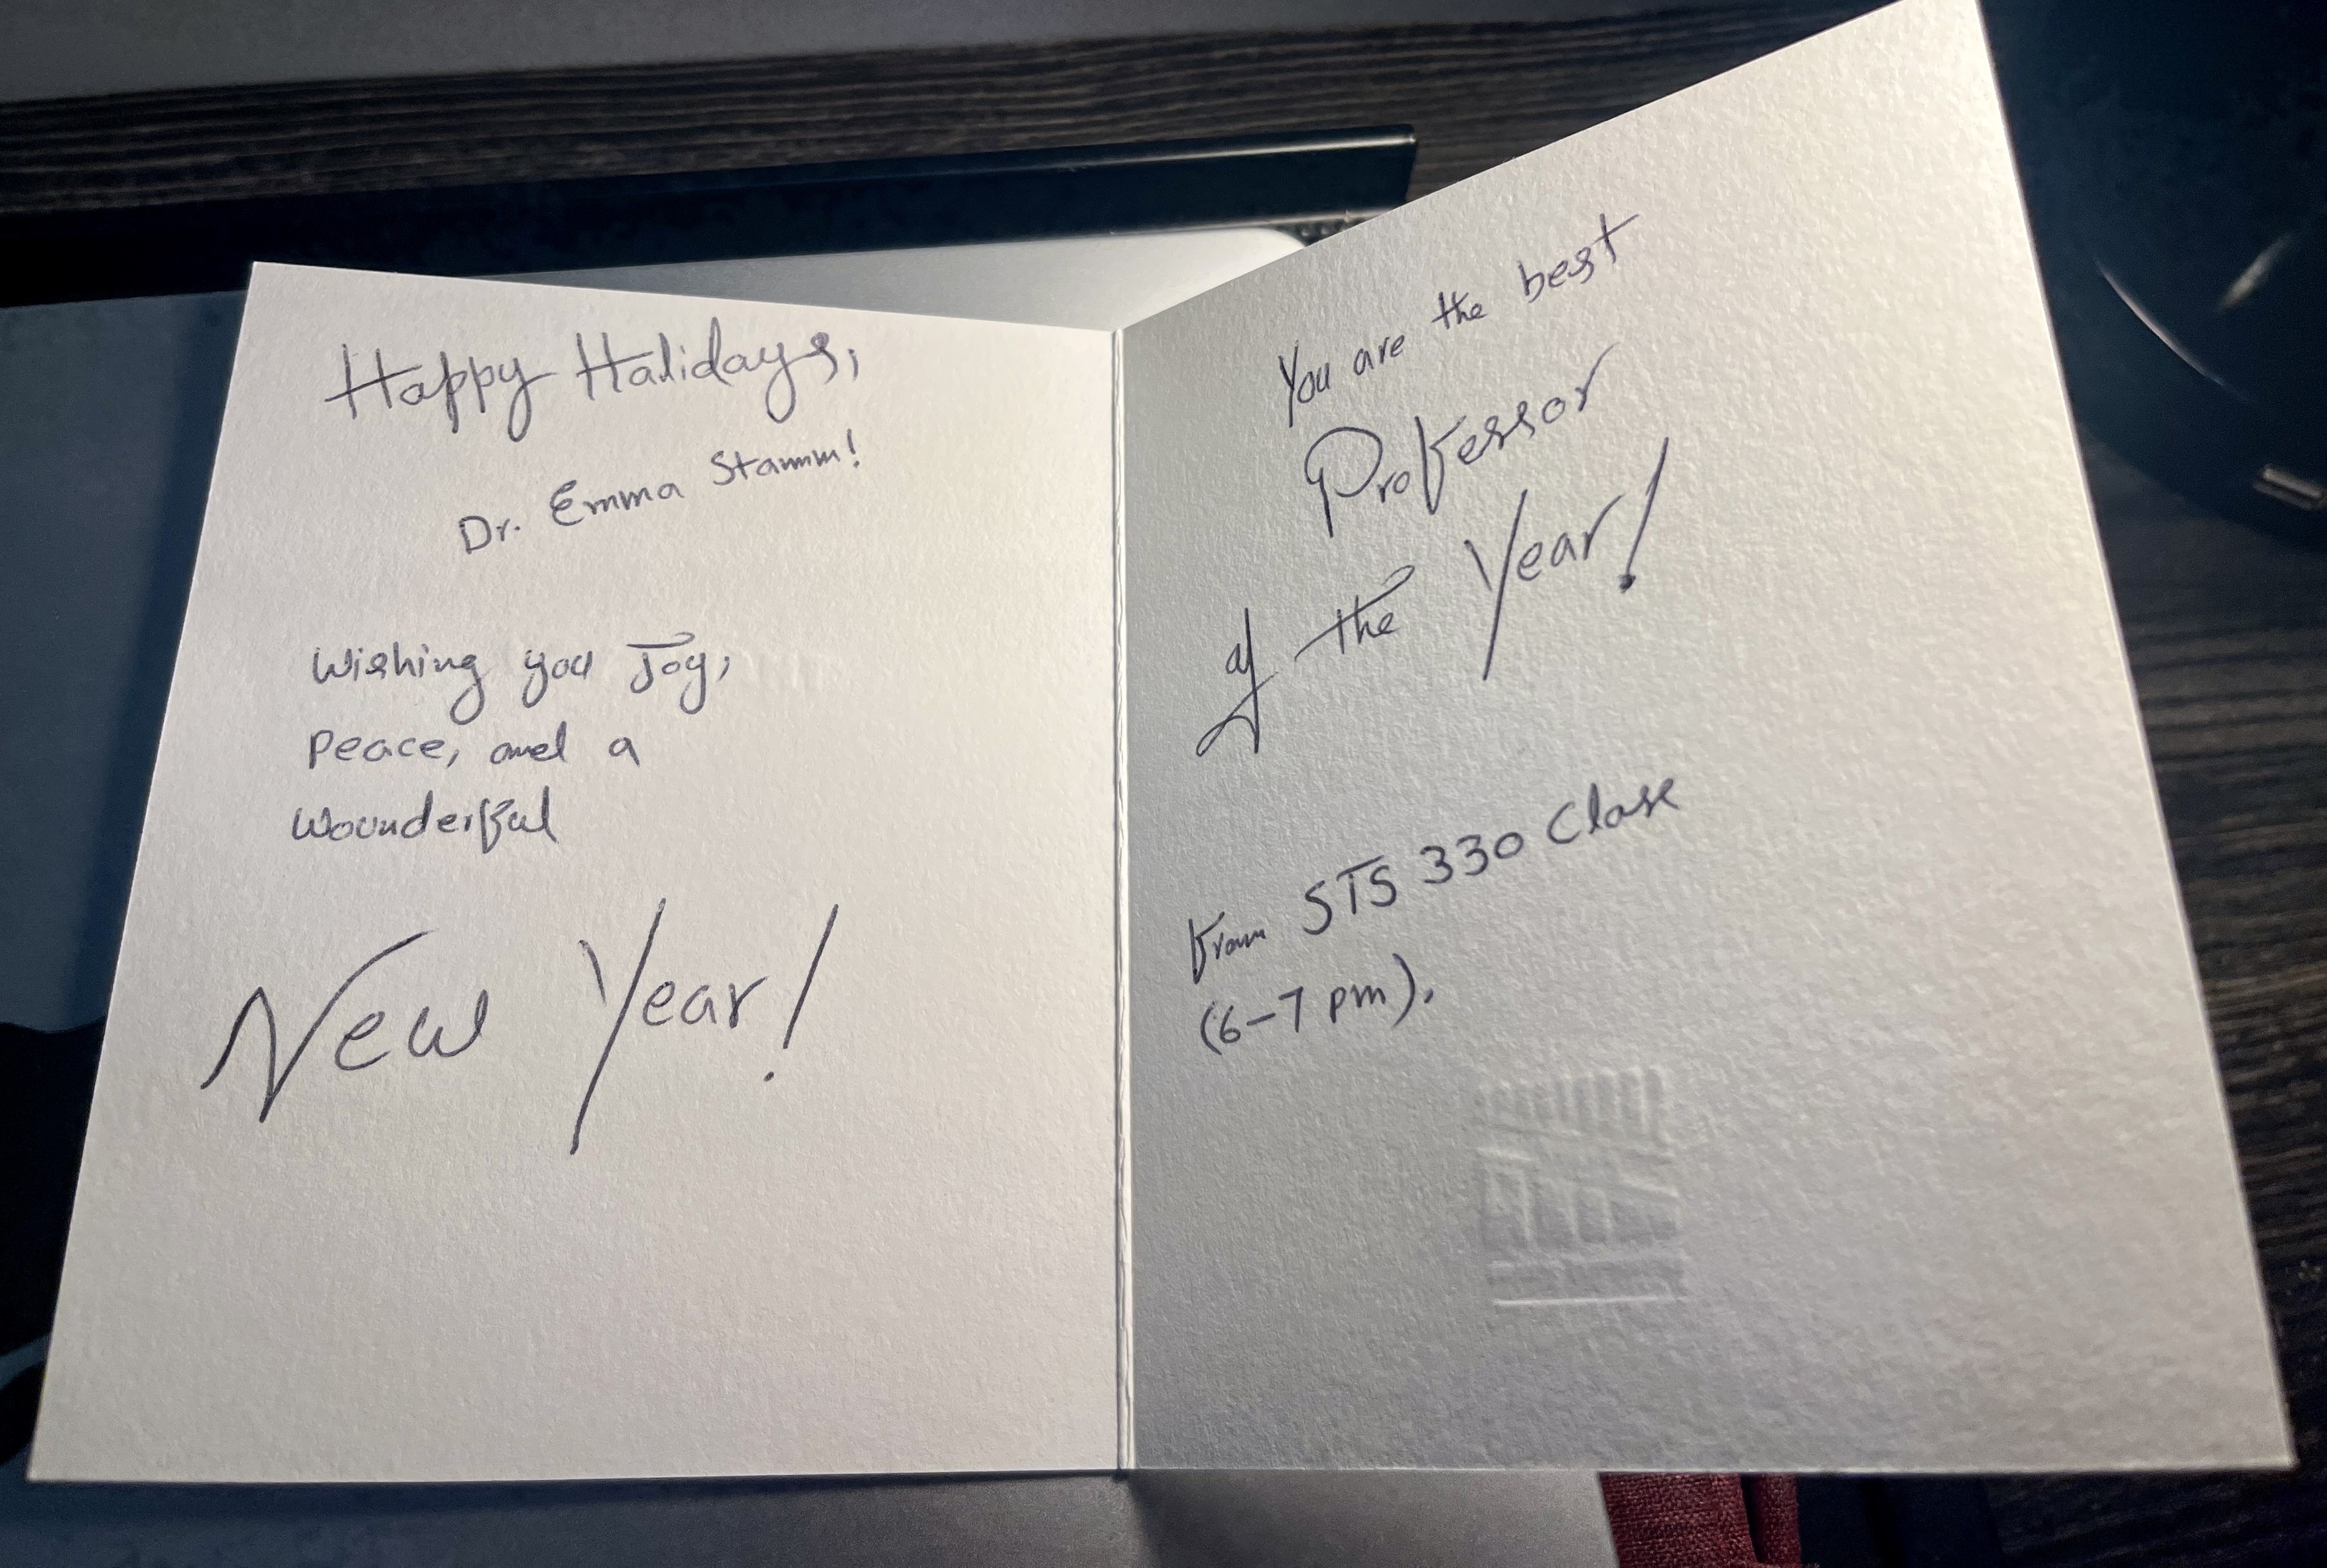 Happy Halidays,
Dr. Emma Stamm!
Wishing you Joy,
Peace, and a
Wounderful
New Year!
You are the best
Professor
of the Year!
From STS 330 Class
(6-7 pm).